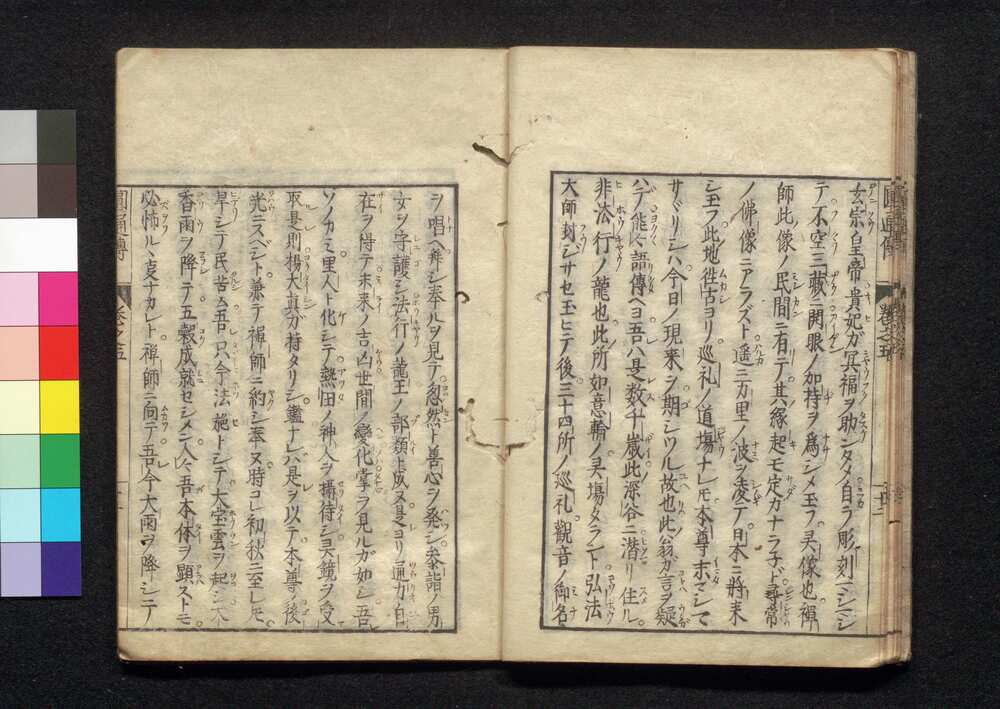 玄宗皇帝貴妃ガ冥福ヲ助ンタメ自ラ彫刻マシマシ
テ不空三藏ニ開眼ノ加持ヲ爲シメ玉フ灵像也禪
師此像ノ民間ニ有テ其縁起モ定カナラ子ド尋常
ノ佛像ニアラズト遥ニ万里ノ波ヲ凌テ日本ニ將来
シ玉フ此地徃古ヨリ巡礼ノ道場ナレドモ本尊末マシマサ
サヾリシハ今日ノ現来ヲ期シツル故也此翁ガ言ヲ疑
ハデ能々語傳ヘヨ吾ハ是数千歳此深谷ニ潜リ住ル
非法行ノ龍也此所如意輪ノ灵場タラント弘法
大師刻シサセ玉ヒテ後三十四所ノ巡礼觀音ノ御名
ヲ唱ヘ拜シ奉ルヲ見テ忽然ト善心ヲ発シ参詣ノ男
女ヲ守護シ法行ノ龍王ノ部類ト成ヌ是ヨリ通力自
在ヲ得テ未来ノ吉凶世間ノ變化掌ヲ見ルガ如シ吾
ソノカミ里人ト化シテ熱田ノ神人ヲ攝待シ灵鏡ヲ受
取是則楊大真ガ持タリシ鑑ナレバ是ヲ以テ本尊ノ後
光ニスベシト兼テ禪師ニ約シ奉ヌ時コレ初秋ニ至レドモ
旱シテ民苦ム吾只今法施トシテ大宝雲ヲ起シ
香雨ヲ降テ五穀成就セシメン人々吾本体ヲ顕ストモ
必怖ルヽ支ナカレト禅師ニ向テ吾今大雨ヲ降シテ
圓通傳 巻之五